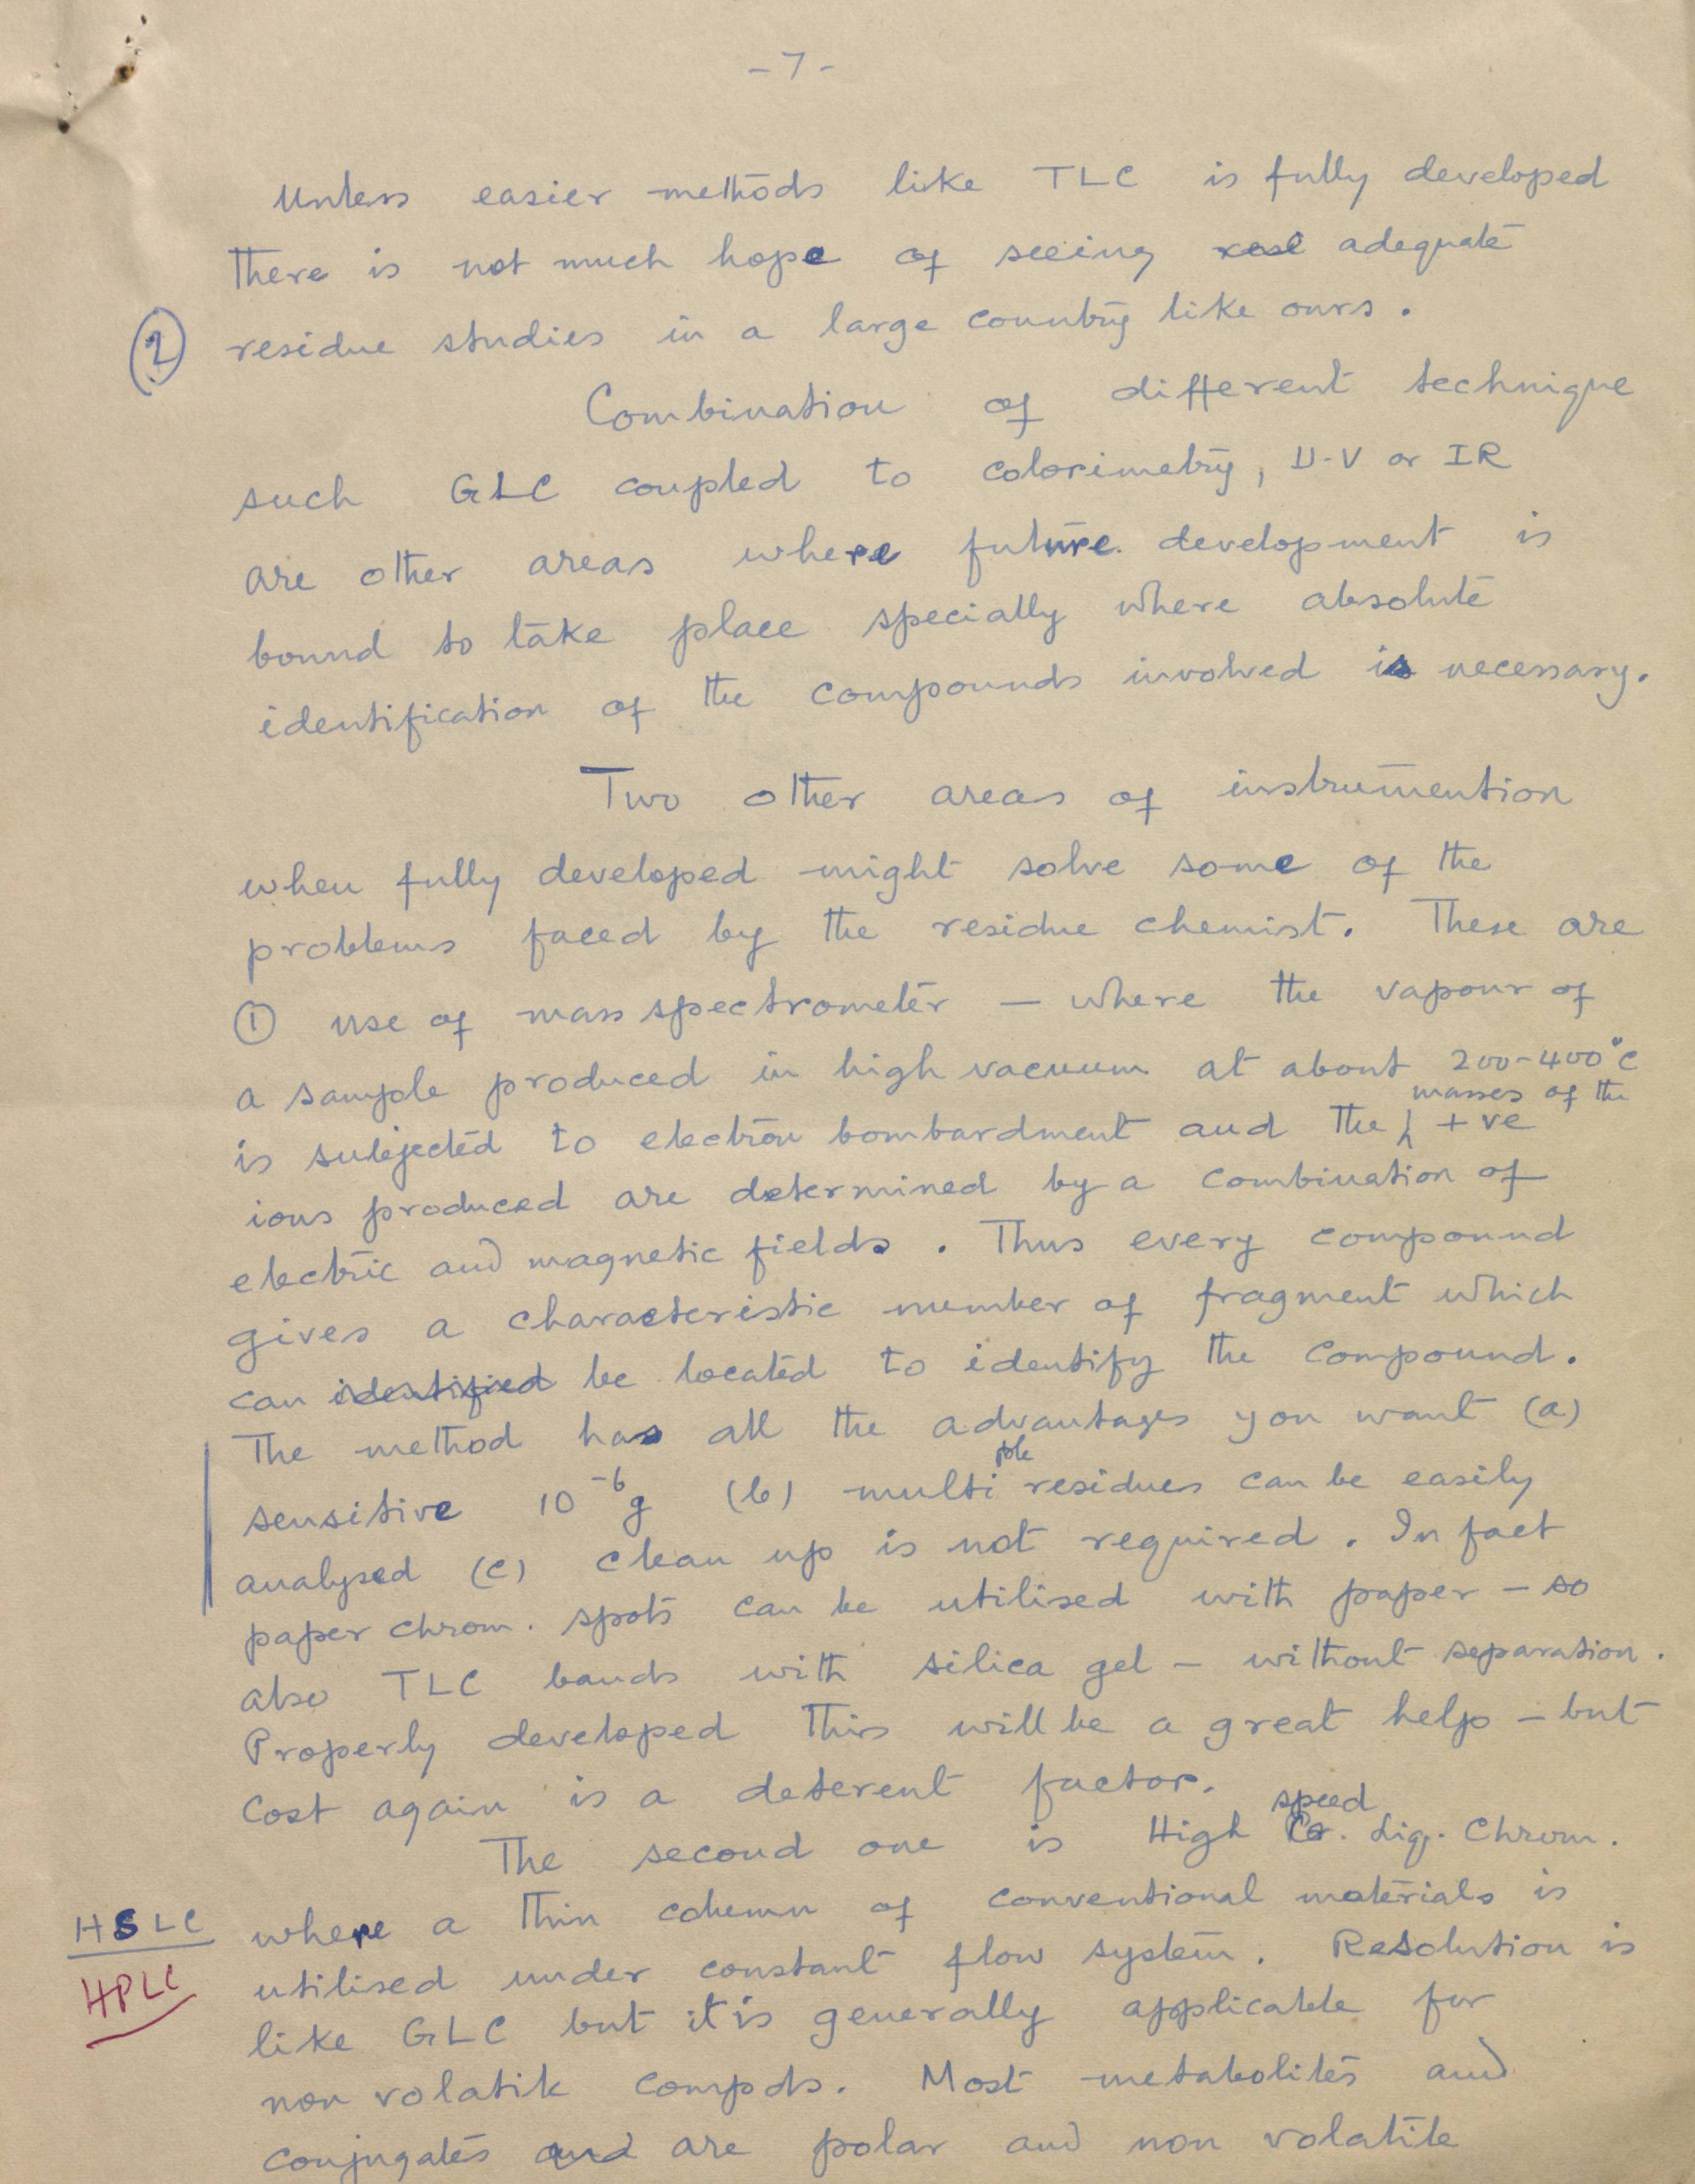 - 7 -
Unless easier methods like TLC is fully developed
there is not much hope of seeing adequate
② residue studies in a large country like ours.
Combination of different technique
such GLC coupled to colorimetry, U-V or IR
are other areas where future development is
bound to take place specially where absolute
identification of the compounds involved is necessary.
Two other areas of instrumention
when fully developed might solve some of the
problems faced by the residue chemist. These are
① use of mass spectrometer — where the vapour of
a sample produced in high vacuum at about 200-400°C
masses of the
is subjected to electron bombardment and the +ve
ions produced are determined by a combination of
electric and magnetic fields. Thus every compound
gives a characteristic number of fragment which
can identified be located to identify the compound.
The method has all the advantages you want (a)
sensitive 10⁻⁶g (b) multiple residues can be easily
analysed (c) clean up is not required. In fact
paper chrom. spots can be utilised with paper - so
also TLC bands with silica gel - without separation.
Properly developed this will be a great help - but
Cost again is a deterent factor.
speed
The second one is High Liq. Chrom.
HSLC where a thin column of conventional materials is
HPLC utilised under constant flow system. Resolution is
like GLC but it is generally applicable for
non volatile compds. Most metabolites and
conjugates and are polar and non volatile